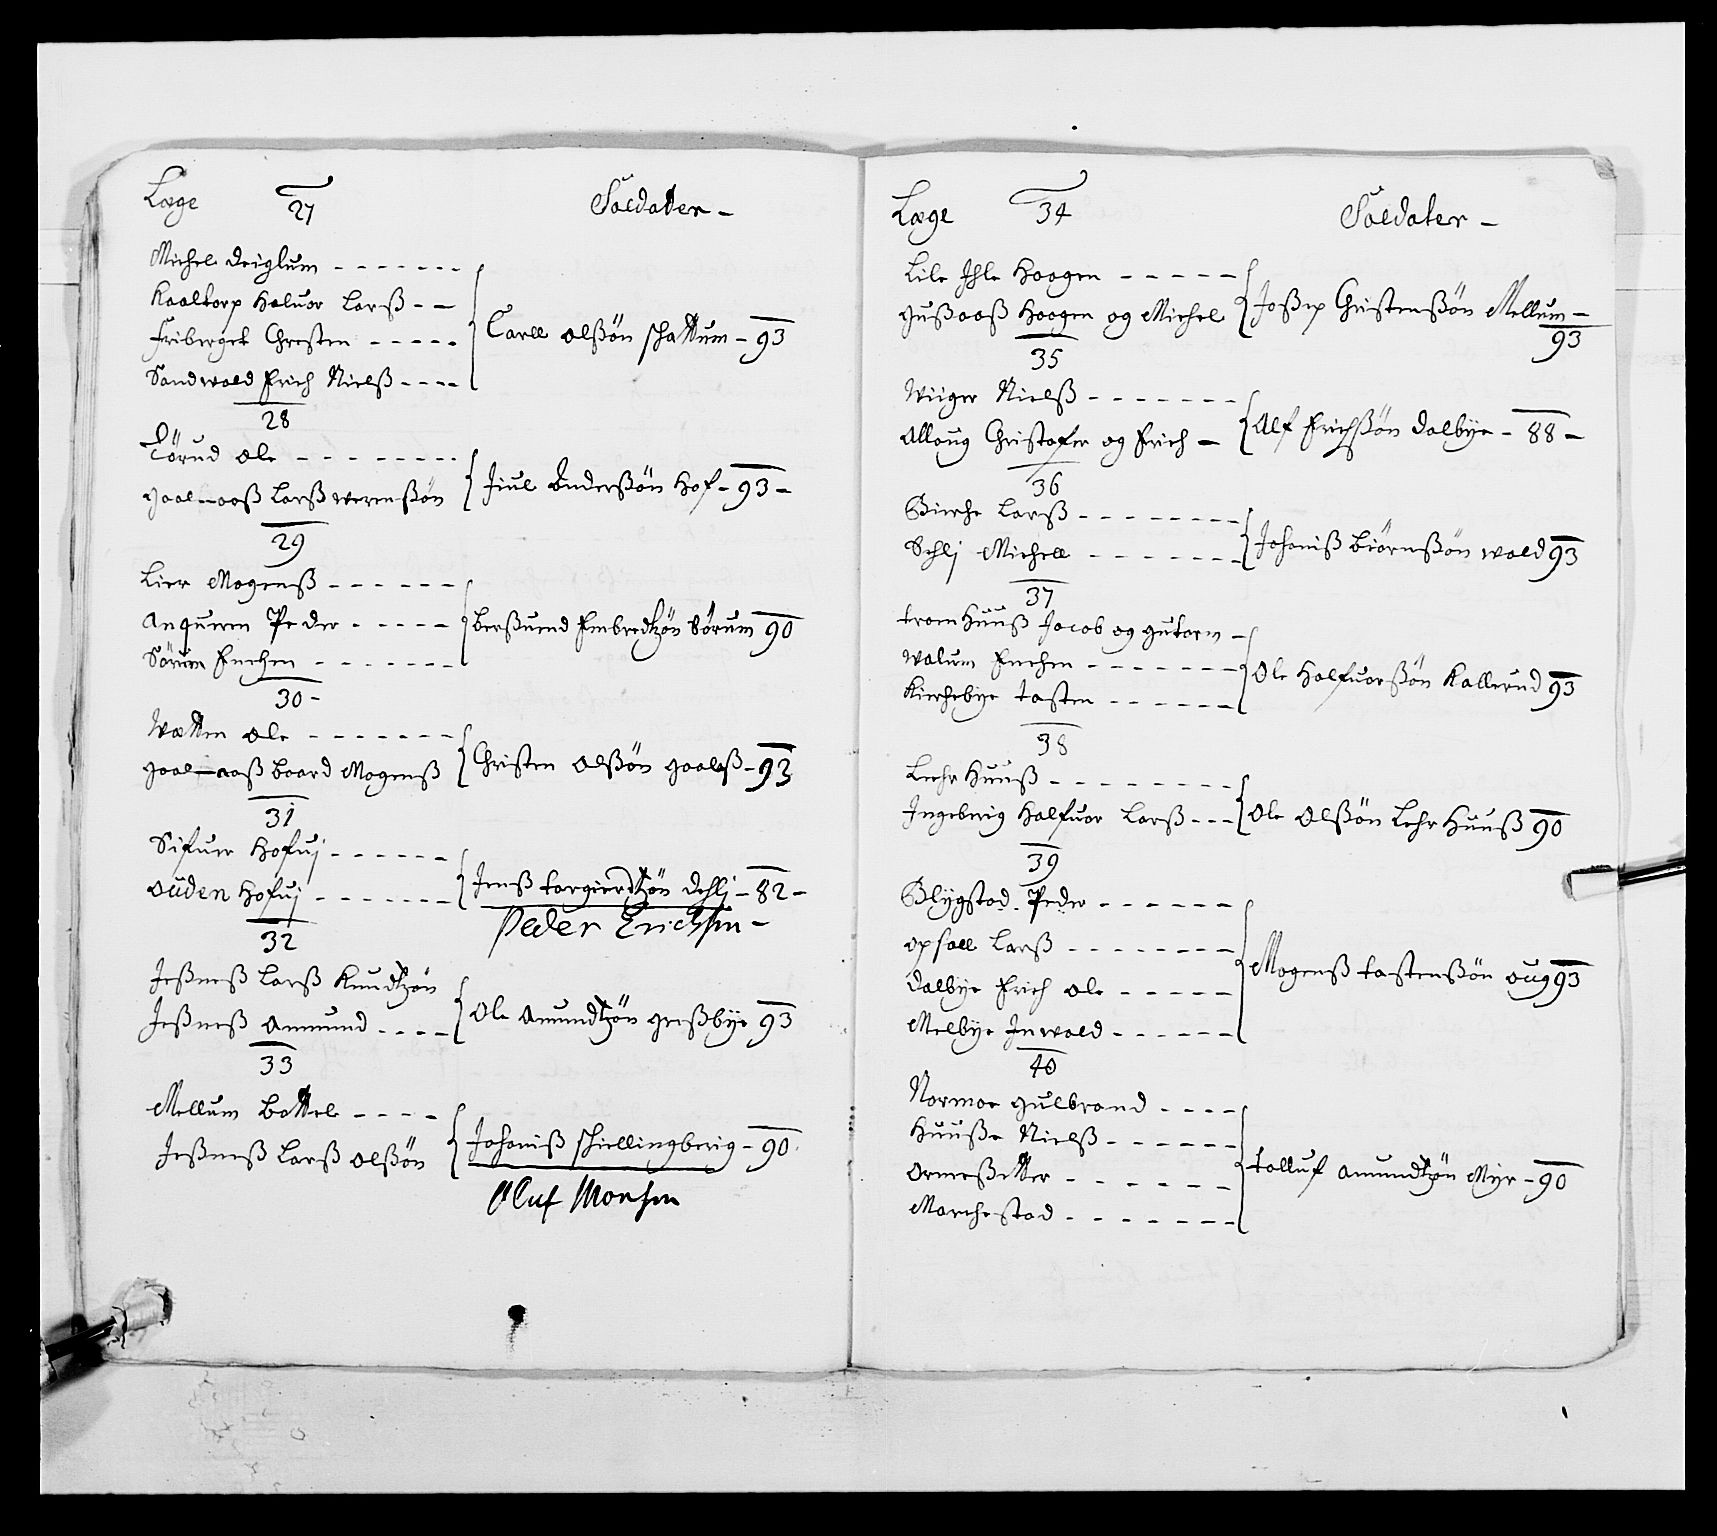 Læge 27 Soldater -
Michel Deiglum
Kaaltorp Haluor Larß
Friberget Chresten
Sandwold Erich Nielß
Carll Olßön schattum - 93
28
Törud Ole
Haal-aaß Larß wermßön
Juul Anderßön Hof - 93 -
29
Lier Mogenß
Anquern Peder
Sörum Enchen
Berßuend Embredtzön Sörum 90
30 -
Wætten Ole
Haal-aaß Baard Mogenß
Christen Olßön Haalaß - 93
31
Sifuer Hofuj
Ouden Hofuj
Jenß targierdtzön Dehlj - 82 -
Peder Erichsen -
32
Jeßneß Larß Knudtzön
Jeßneß Amund
Ole Amundtzön greßbye 93
33
Mellum Bottel
Jeßneß Larß Olßön
Johaniß schiellingberig - 90
Oluf Monsen
Læge 34 Soldater -
Lile Ihle Haagen
gußaaß Haagen og Michel
Joßep Christenßön Mellum -
93
35
Wiiger Nielß
Alloug Christofer og Erich -
Alf Erichßön Dalbye - 88 -
36
Bierche Larß
Sehlj Michell
Johaniß Biörnßön wold 93
37
tromHuuß Jacob og gutorm -
Walum Enchen
Kierchebye tosten
Ole Halfuorßön Kallerud 93
38
LeehrHuuß
Ingeberig Halfuor Larß
Ole Olßön LehrHuuß 90
39
Blygstad Peder
opsall Larß
Dalbye Erich Ole
Melbye Inwold
Mogenß tostenßön oug 93
40
Normoe gulbrand
Huuße Nielß
Ormeßetter
Marchestad
talluf Amundtzön Myr - 90